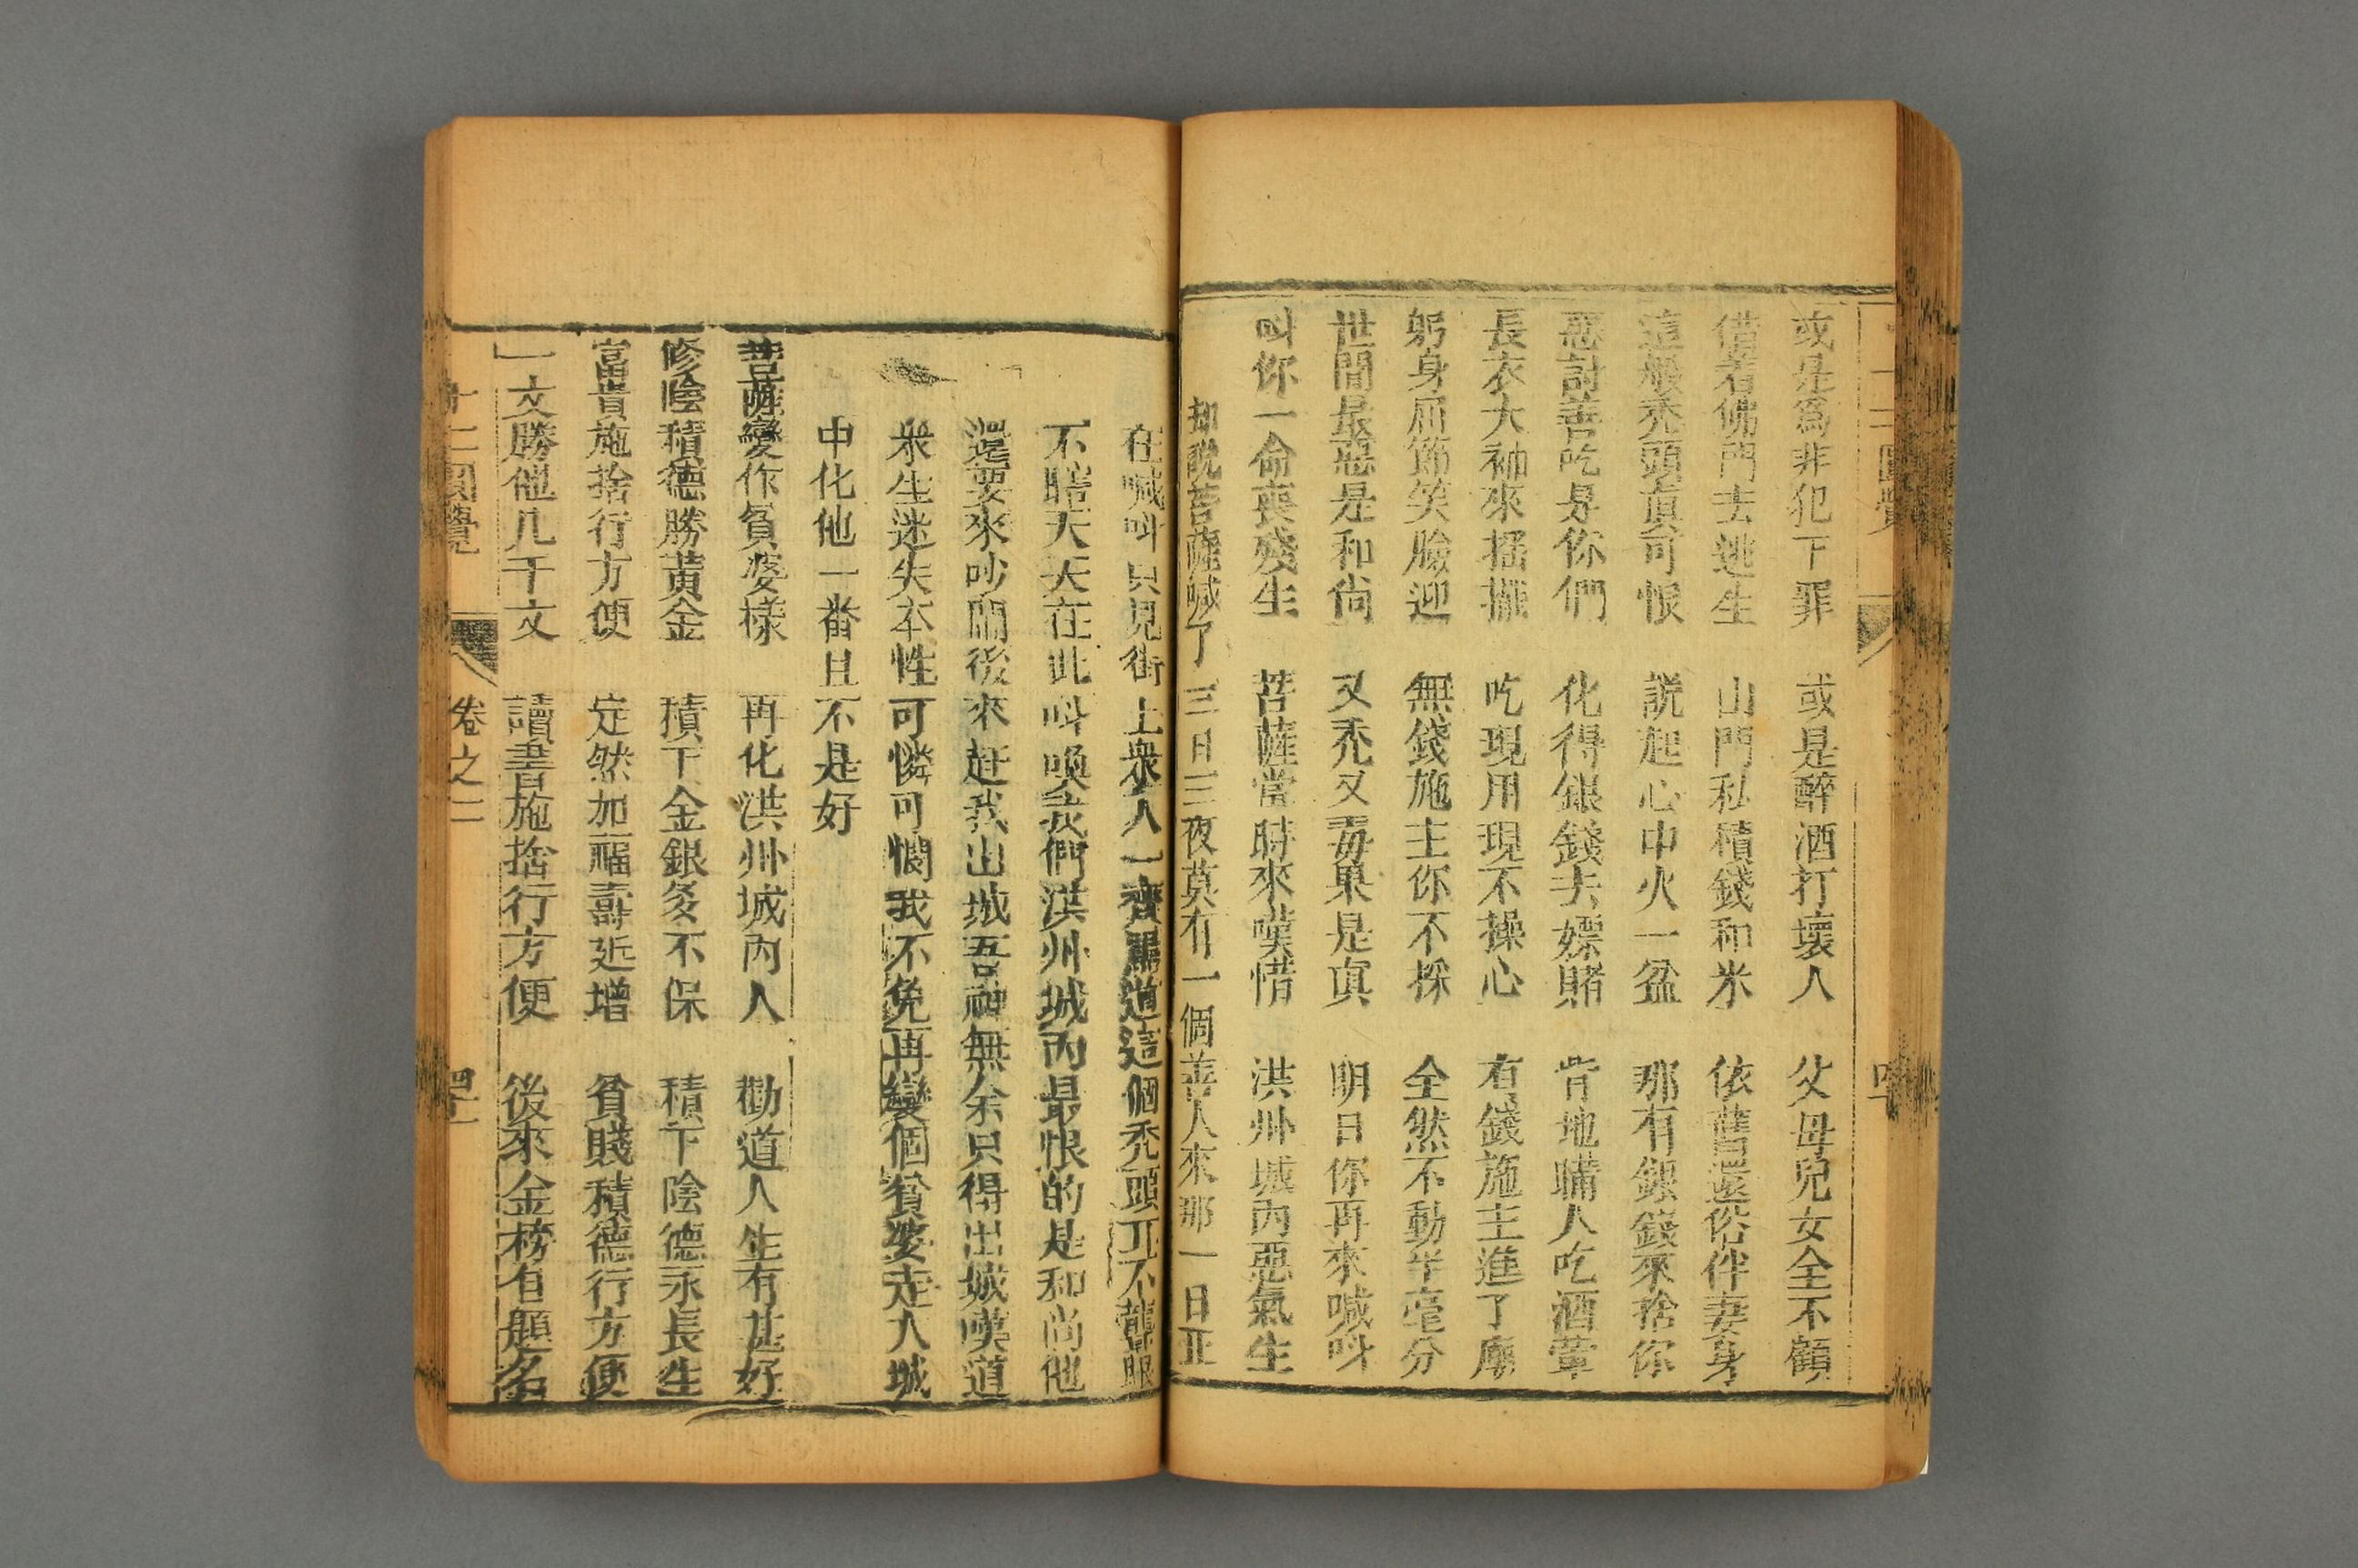 十二圓覺
或是爲非犯下罪 或是醉酒打壞人 父母兒女全不顧
借着佛門去逃生 山門私積錢和米 依舊還俗伴妻身
這般禿頭眞可恨 説起心中火一盆 那有銀錢來捨你
惡討善吃是你們 化得銀錢去嫖賭 背地瞞人吃酒葷
長衣大袖來摇擺 吃現用現不操心 有錢施主進了廟
躬身屈節笑臉迎 無錢施主你不採 全然不動半毫分
世間最惡是和尚 又禿又毒果是真 明日你再來喊叫
叫你一命喪殘生 菩薩當時來嘆惜 洪州城内惡氣生
却說菩薩喊了三日三夜莫有一個善人來那一日正
在喊叫只見街上衆人一齊罵道這個禿頭耳不聾眼
不瞎天天在此叫喚我們洪州城内最恨的是和尚他
還要來吵鬧後來赶我出城吾神無奈只得出城嘆道
衆生迷失本性可憐可憫我不免再變個貧婆走入城
中化他一番且不是好
菩薩變作貧婆樣 再化洪州城内人 勸道人生有甚好
修陰積德勝黃金 積下金銀多不保 積下陰德永長生
富貴施捨行方便 定然加福壽延增 貧賤積德行方便
一文勝他几千文 讀書施捨行方便 後來金榜自題名
十二圓覺 卷之二